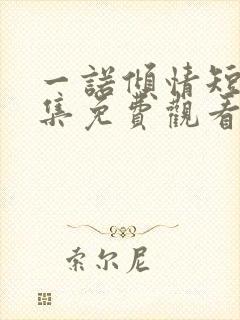 一諾傾情短
集免費觀看
索尔尼